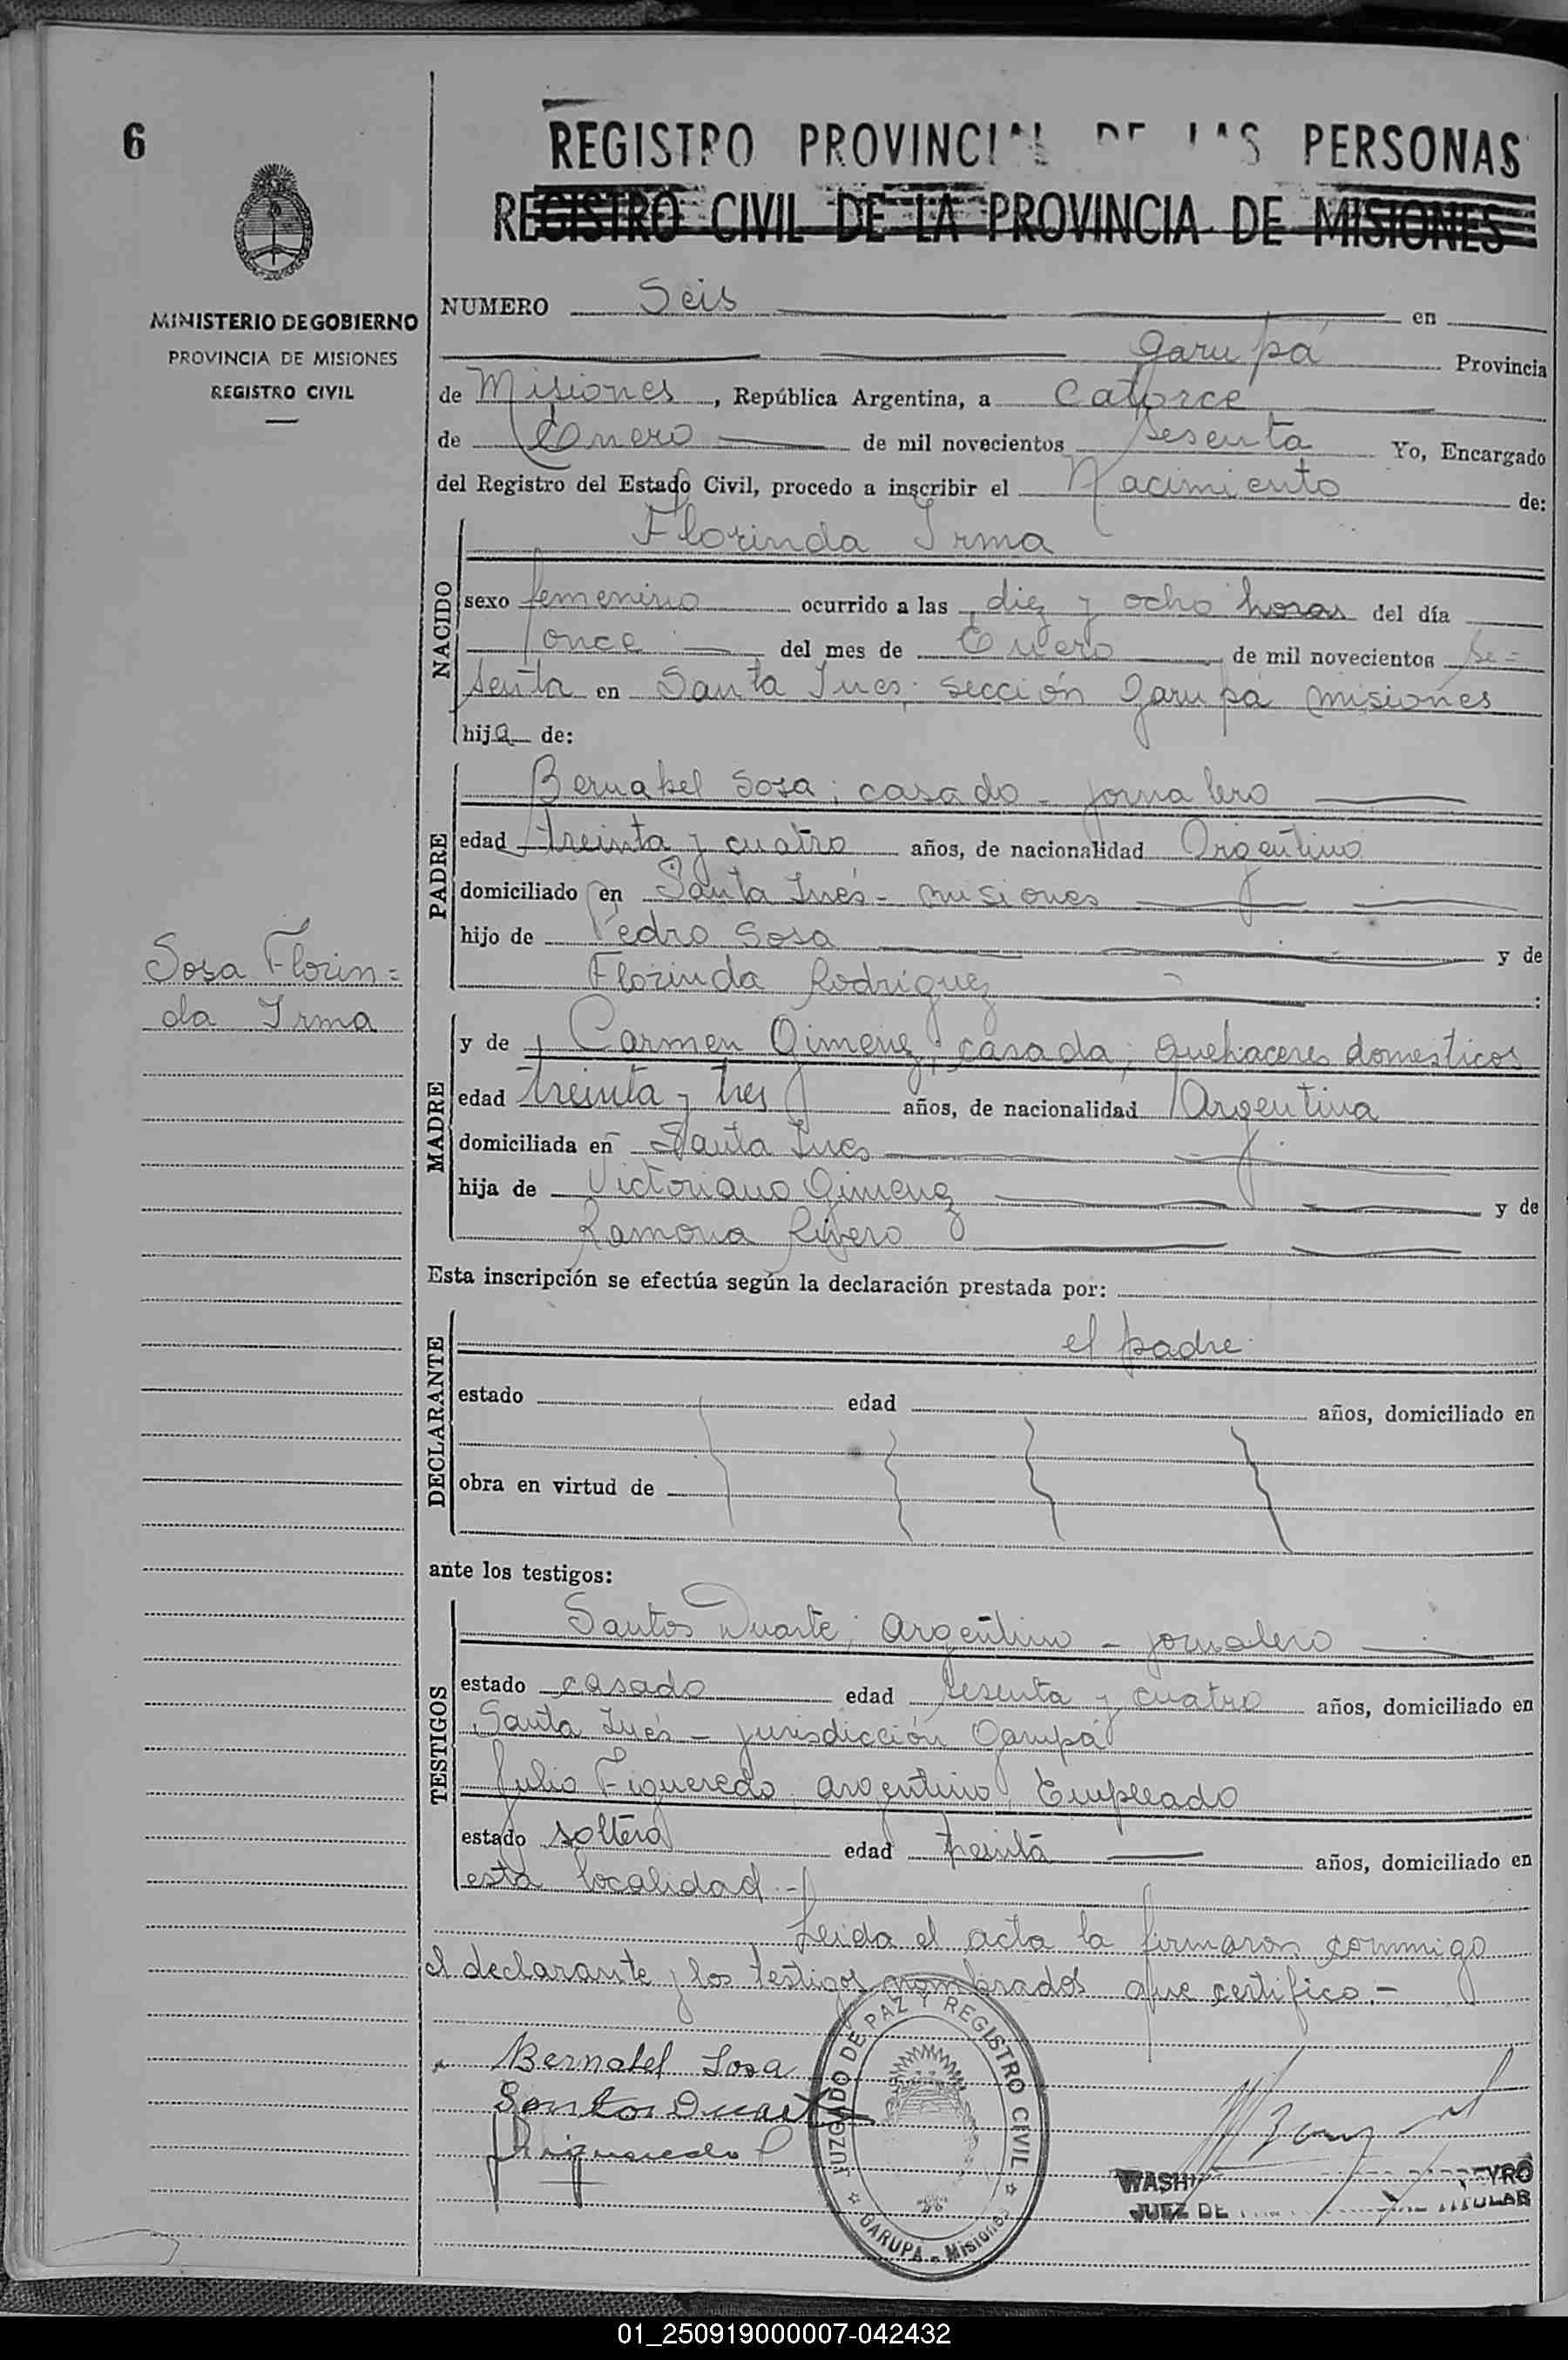 6
REGISTRO PROVINCIAL DE LAS PERSONAS
REGISTRO CIVIL DE LA PROVINCIA DE MISIONES
MINISTERIO DE GOBIERNO
PROVINCIA DE MISIONES
REGISTRO CIVIL
NUMERO Seis en
Garupá Provincia
de Misiones, República Argentina, a Catorce
de Enero de mil novecientos sesenta Yo, Encargado
del Registro del Estado Civil, procedo a inscribir el Nacimiento de:
NACIDO
Florinda Irma
sexo femenino ocurrido a las diez y ocho horas del día
once del mes de Enero de mil novecientos se=
senta en Santa Ines; sección Garupá Misiones
hija de:
PADRE
Bernabel Sosa; casado - jornalero
edad treinta y cuatro años, de nacionalidad Argentino
domiciliado en Santa Inés - Misiones
hijo de Pedro Sosa y de
Florinda Rodriguez :
Sosa Florin=
da Irma
MADRE
y de Carmen Gimenez; casada; quehaceres domesticos
edad treinta y tres años, de nacionalidad Argentina
domiciliada en Santa Ines
hija de Victoriano Gimenez y de
Ramona Rivero
Esta inscripción se efectúa según la declaración prestada por:
DECLARANTE
el padre
estado edad años, domiciliado en
obra en virtud de
ante los testigos:
TESTIGOS
Santos Duarte; argentino - jornalero
estado casado edad sesenta y cuatro años, domiciliado en
Santa Inés - jurisdicción Garupá
Julio Figueredo, argentino, Empleado
estado soltero edad treinta años, domiciliado en
esta localidad.-
Leida el acta la firmaron conmigo
el declarante y los testigos nombrados que certifico.-
Bernabel Sosa
Santos Duarte
JFigueredo
JUZGADO DE PAZ Y REGISTRO CIVIL
GARUPA - Misiones
WASHI YRO
JUEZ DE TITULAR
01_250919000007-042432